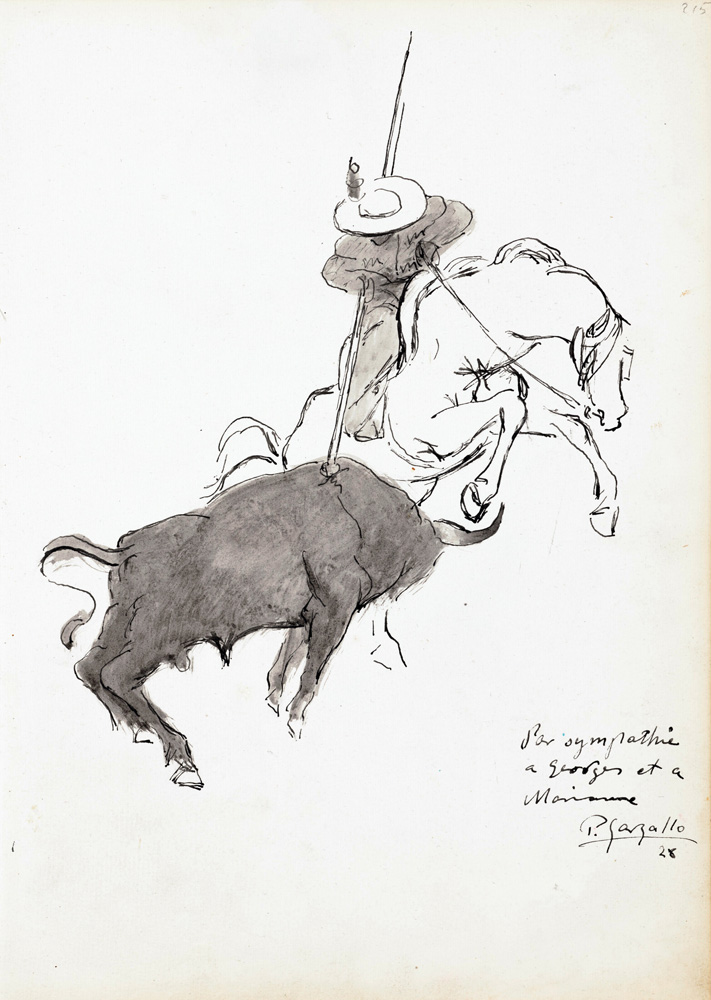 215
Par sympathie
a Georges et a
Marianne
P. Gargallo
28